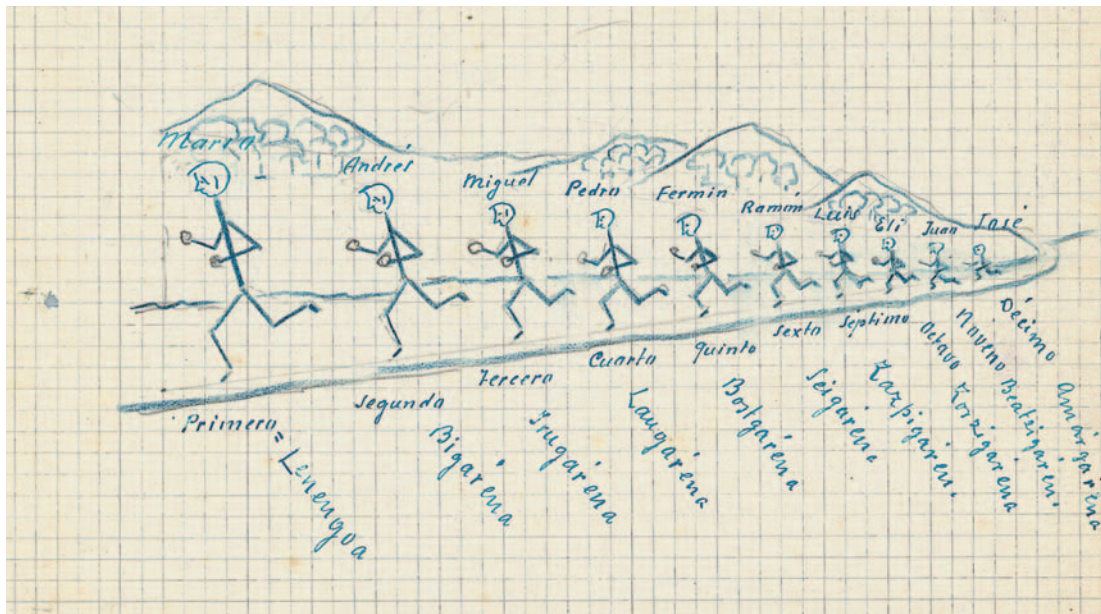 Marro
Andrés
Miguel
Pedro
Fermin
Ramón
Luis
Eli
Juan
José
Primero = Lenengoa
Segundo
Bigaréna
Tercero
Irugaréna
Cuarto
Laugaréna
Quinto
Bostgaréna
Sexto
Seigaréna
Séptimo
Zazpigarén.
Octavo
Zorzigaréna
Noveno
Beatzigarén.
Décimo
Amargaréna